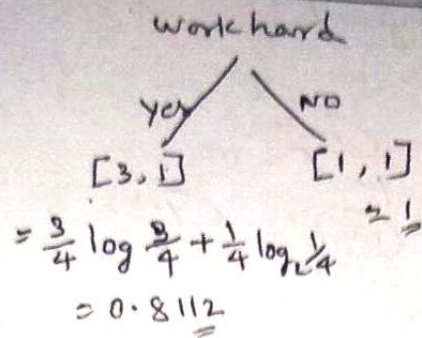 work hard
Yes NO
[3, 1] [1, 1]
= 3/4 log 3/4 + 1/4 log₂ 1/4 = 1
= 0.8112